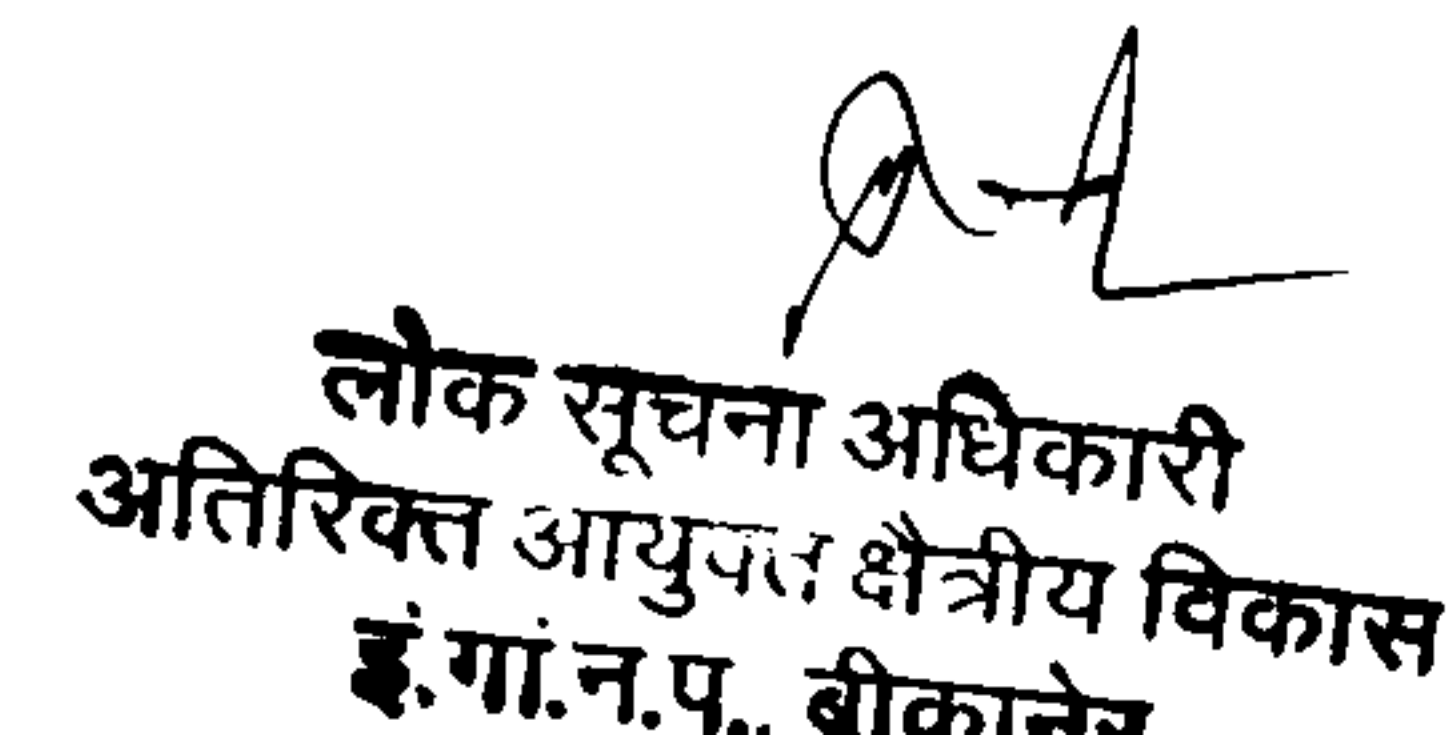 लोक सूचना अधिकारी
अतिरिक्त आयुक्त क्षैत्रीय विकास
इं.गां.न.प., बीकानेर